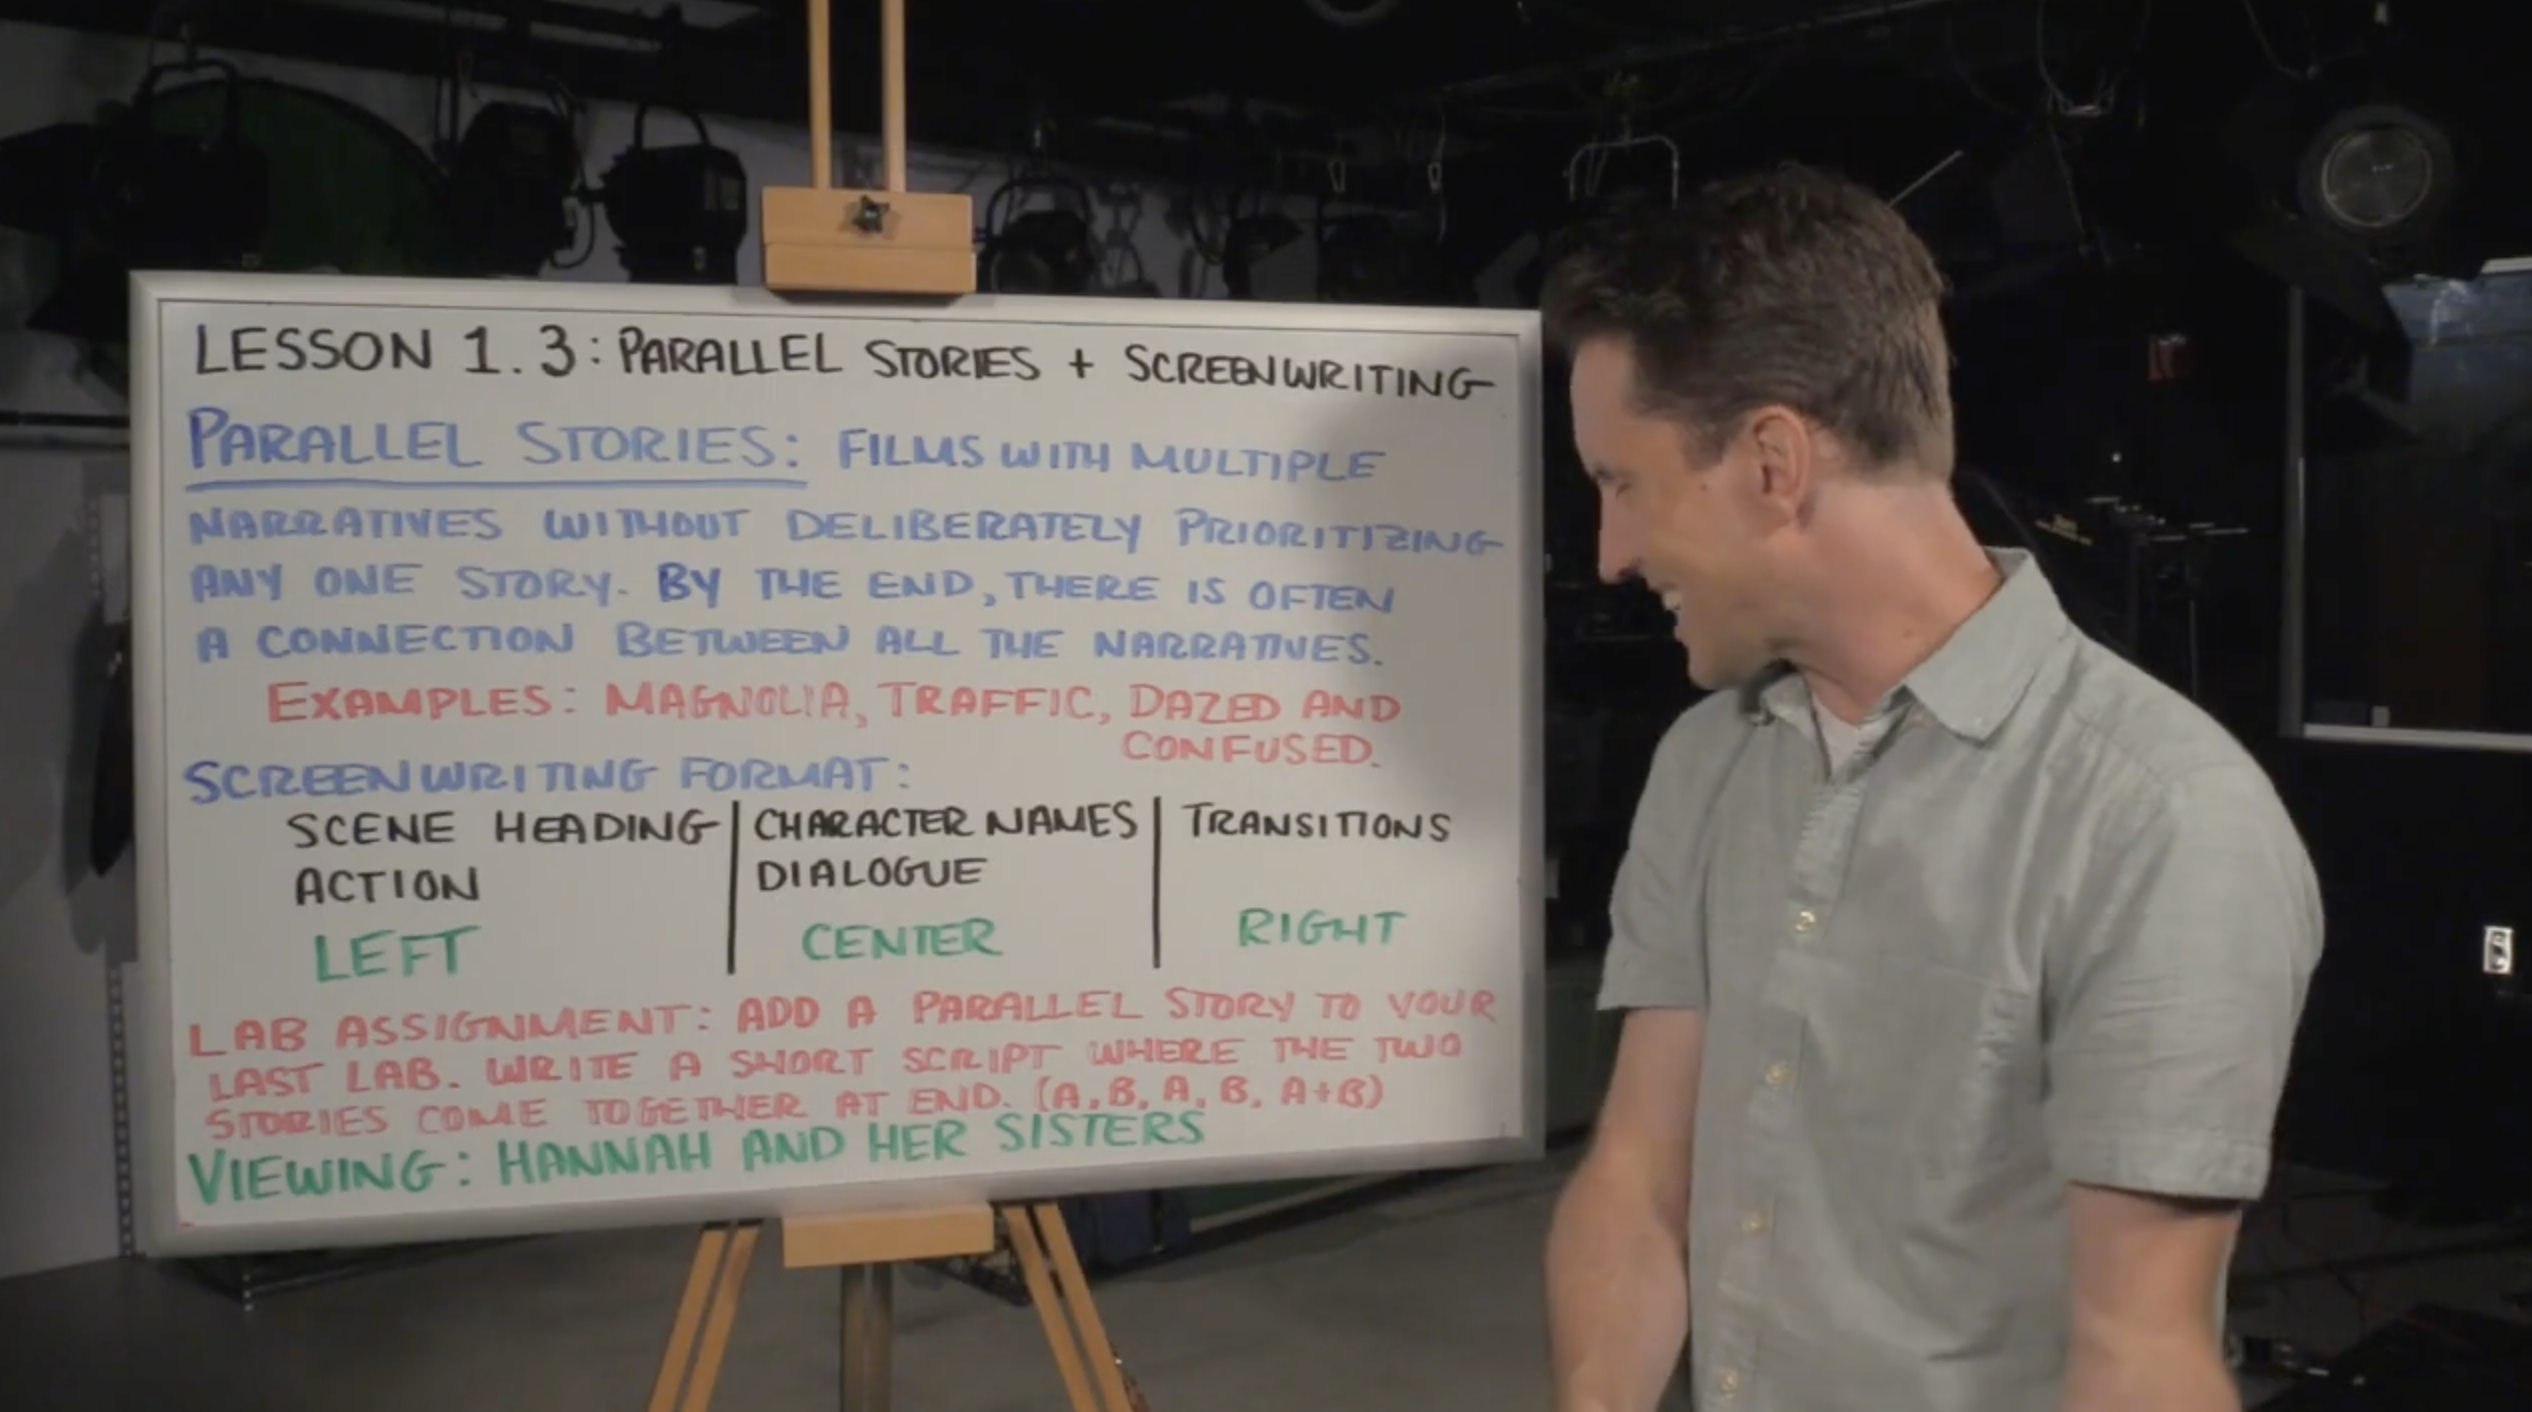 LESSON 1.3: PARALLEL STORIES + SCREENWRITING
PARALLEL STORIES: FILMS WITH MULTIPLE
NARRATIVES WITHOUT DELIBERATELY PRIORITIZING
ANY ONE STORY. BY THE END, THERE IS OFTEN
A CONNECTION BETWEEN ALL THE NARRATIVES.
EXAMPLES: MAGNOLIA, TRAFFIC, DAZED AND
CONFUSED.
SCREENWRITING FORMAT:
SCENE HEADING | CHARACTER NAMES | TRANSITIONS
ACTION | DIALOGUE
LEFT | CENTER | RIGHT
LAB ASSIGNMENT: ADD A PARALLEL STORY TO YOUR
LAST LAB. WRITE A SHORT SCRIPT WHERE THE TWO
STORIES COME TOGETHER AT END. (A, B, A, B, A+B)
VIEWING: HANNAH AND HER SISTERS